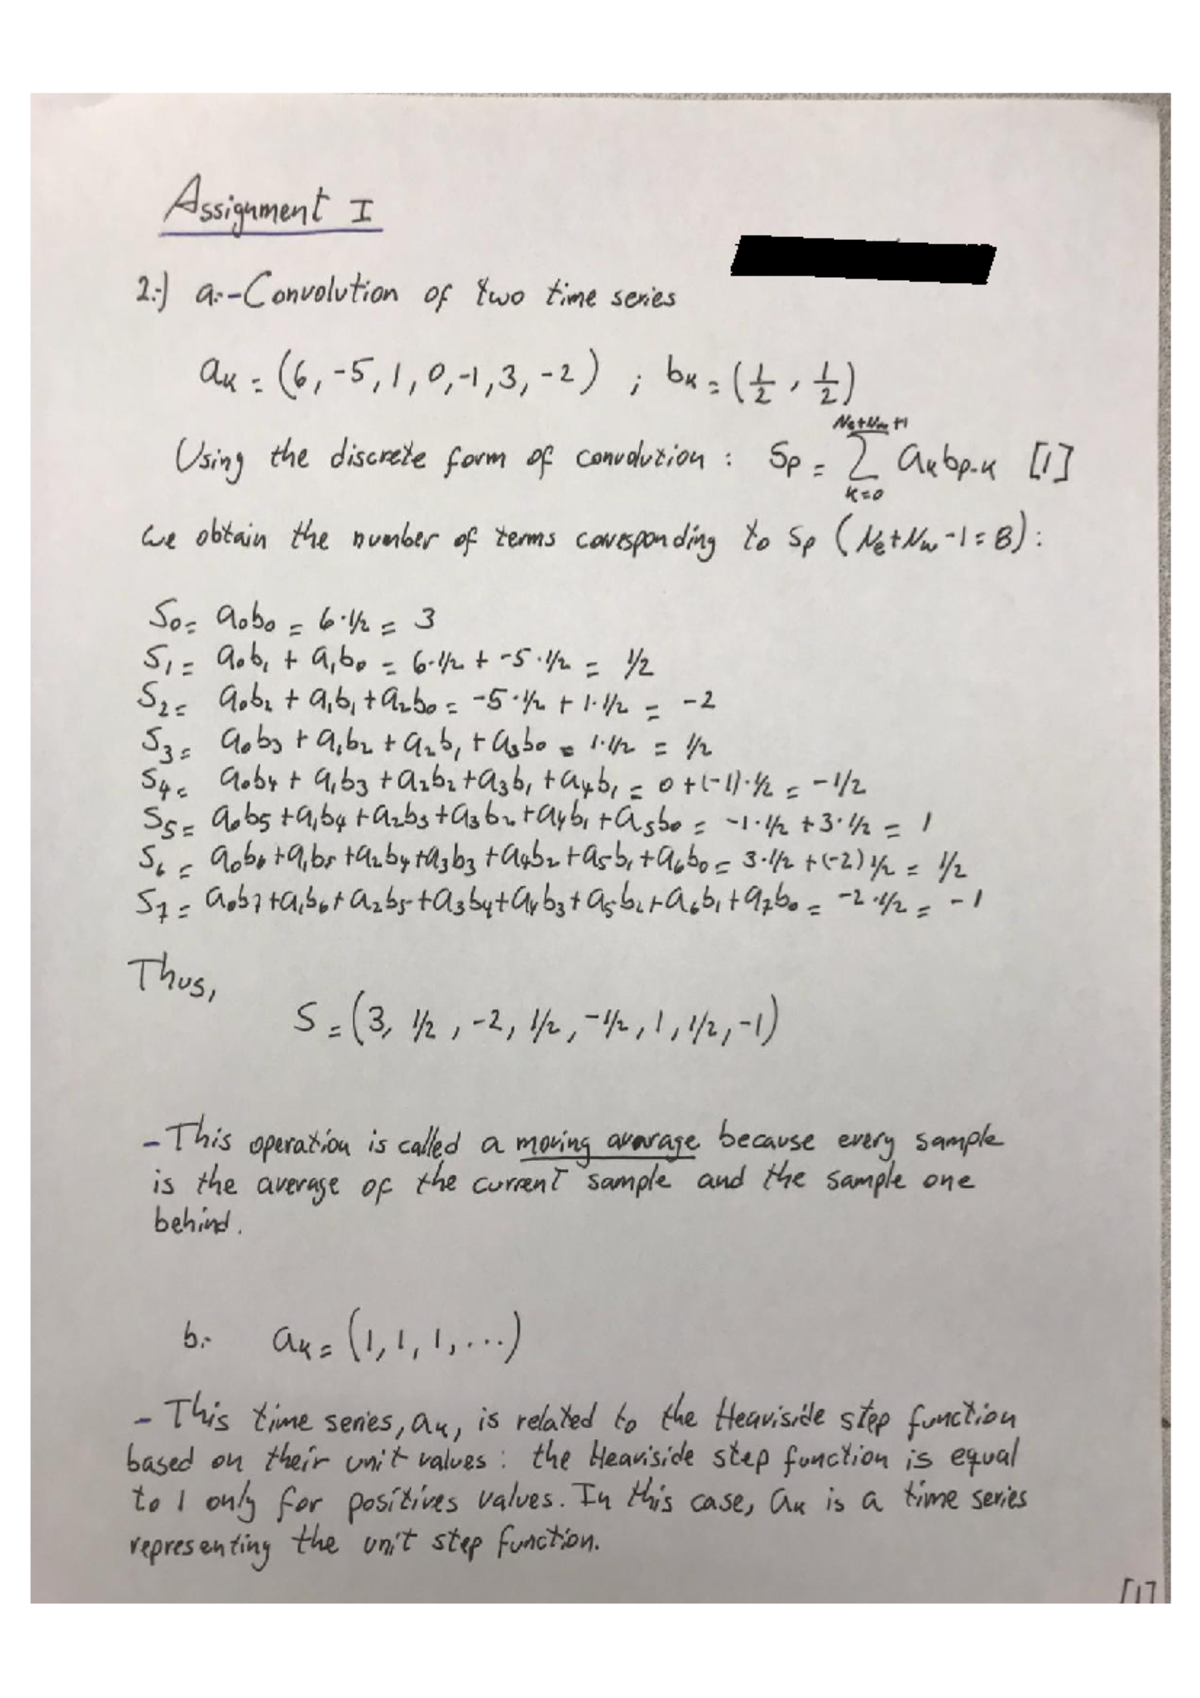 Assignment I
2.-) a.- Convolution of two time series
aₖ = (6, -5, 1, 0, -1, 3, -2) ; bₖ = (1/2, 1/2)
Nₑ+Nw+1
Using the discrete form of convolution : Sp = Σ aₖ bp-ₖ [1]
k=0
we obtain the number of terms corresponding to Sp (Nₑ+Nw-1=8) :
S₀ = a₀b₀ = 6·1/2 = 3
S₁ = a₀b₁ + a₁b₀ = 6·1/2 + -5·1/2 = 1/2
S₂ = a₀b₂ + a₁b₁ + a₂b₀ = -5·1/2 + 1·1/2 = -2
S₃ = a₀b₃ + a₁b₂ + a₂b₁ + a₃b₀ = 1·1/2 = 1/2
S₄ = a₀b₄ + a₁b₃ + a₂b₂ + a₃b₁ + a₄b₁ = 0 + (-1)·1/2 = -1/2
S₅ = a₀b₅ + a₁b₄ + a₂b₃ + a₃b₂ + a₄b₁ + a₅b₀ = -1·1/2 + 3·1/2 = 1
S₆ = a₀b₆ + a₁b₅ + a₂b₄ + a₃b₃ + a₄b₂ + a₅b₁ + a₆b₀ = 3·1/2 + (-2)1/2 = 1/2
S₇ = a₀b₇ + a₁b₆ + a₂b₅ + a₃b₄ + a₄b₃ + a₅b₂ + a₆b₁ + a₇b₀ = -2·1/2 = -1
Thus,
S = (3, 1/2, -2, 1/2, -1/2, 1, 1/2, -1)
- This operation is called a moving avarage because every sample
is the average of the current sample and the sample one
behind.
b.- aₖ = (1, 1, 1, ...)
- This time series, aₖ, is related to the Heaviside step function
based on their unit values : the Heaviside step function is equal
to 1 only for positives values. In this case, aₖ is a time series
representing the unit step function.
[1]